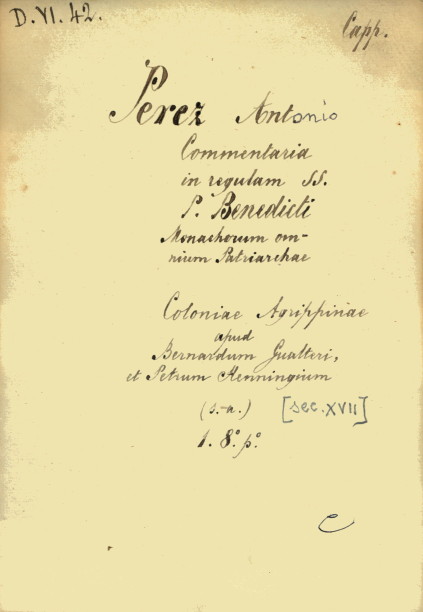 D. VI. 42.
Capp.
Perez Antonio
Commentaria
in regulam SS.
P. Benedicti
Monachorum om-
nium Patriarchae
Coloniae Agrippinae
apud
Bernardum Gualteri,
et Petrum Henningium
(s.-a.) [sec. XVII]
1. 8.° p.°
C